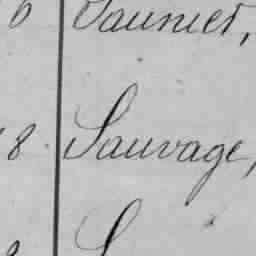 6 Saunier,
8 Sauvage,